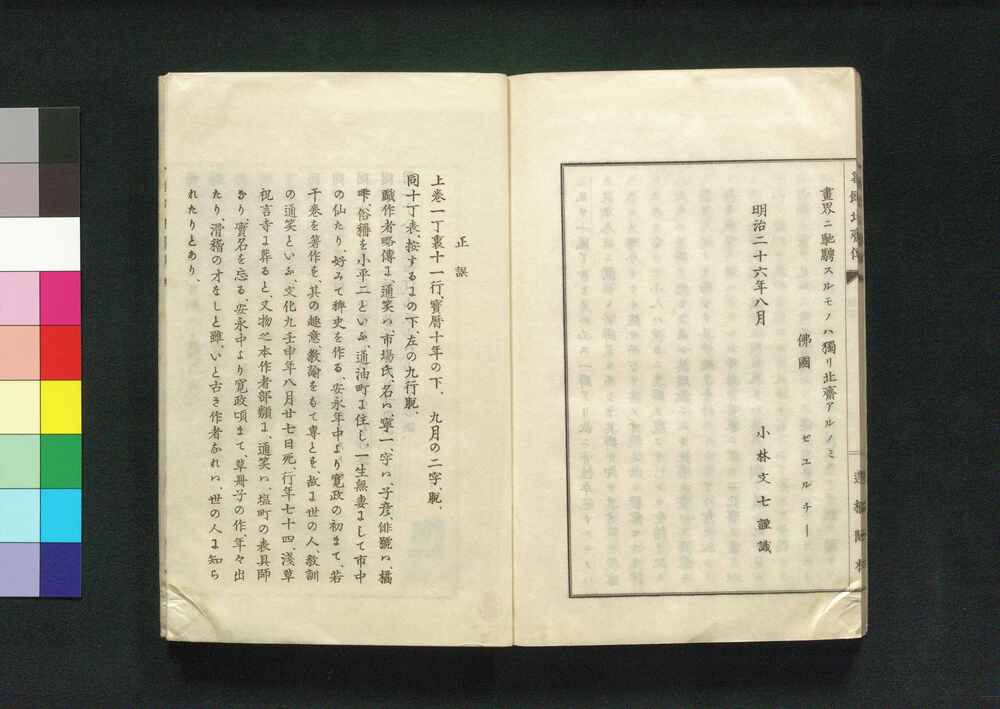 畫界ニ馳騁スルモノハ獨リ北齋アルノミ
佛國　ゼユルチー
明治二十六年八月
小林文七謹識
正誤
上卷一丁裏十一行、寳曆十年の下、九月の二字、脱、
同十丁表、按するよの下、左の九行脱、
戱作者略傳よ、通笑ハ、市場氏、名ハ、寧一、字ハ、子彦、俳號ハ、橘
雫、俗稱を小平二といふ、通油町よ住し、一生無妻よして市中
の仙たり、好みて稗史を作る、安永年中より寛政の初まて、若
干卷を著作を、其の趣意、教諭をもて專とを、故よ世の人、教訓
の通笑といふ、文化九壬申年八月廿七日死、行年七十四、淺草
祝言寺よ葬ると、又物之本作者部類よ、通笑ハ、塩町の表具師
あり、實名を忘る、安永中より寛政頃まて、草册子の作、年々出
たり、滑稽の才なしと雖、いと古き作者なれハ、世の人よ知ら
れたりとあり、